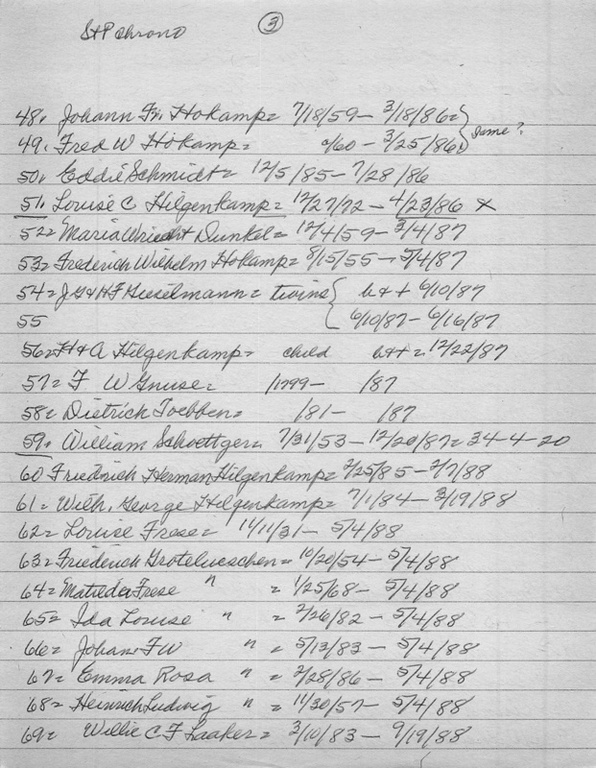 St P chrono ③
48. Johann Fr. Hokamp = 7/18/59 - 3/18/86 =
49. Fred W Hokamp = /60 - 3/25/86 } same?
50. Eddie Schmidt = 12/5/85 - 7/28/86
51. Louise C Hilgenkamp = 12/27/72 - 4/23/86 x
52 = Maria Dunkel = 12/4/59 - 3/4/87
53 = Frederich Wilhelm Hokamp = 8/15/55 - 5/4/87
54 = J G & H F Gieselmann = twins { b + + 6/10/87
55 6/10/87 - 6/16/87
56 = H & A Hilgenkamp = child b + + = 12/22/87
57 = F W Gnuse = /1799 - /87
58 = Dietrich Toebben = /81 - /87
59. William Schoettger = 7/31/53 - 12/20/87 = 34-4-20
60 Friedrich Herman Hilgenkamp = 2/25/85 - 2/7/88
61 = Wilh. George Hilgenkamp = 7/1/84 - 3/19/88
62 = Louise Frese = 11/11/31 - 5/4/88
63 = Friederich Grotelueschen = 10/20/54 - 5/4/88
64 = Matilda Frese " = 1/25/68 - 5/4/88
65 = Ida Louise " = 2/26/82 - 5/4/88
66 = Johann F W " = 5/13/83 - 5/4/88
67 = Emma Rosa " = 2/28/86 - 5/4/88
68 = Heinrich Ludwig " = 11/30/57 - 5/4/88
69 = Willie C F Laaker = 3/10/83 - 9/19/88